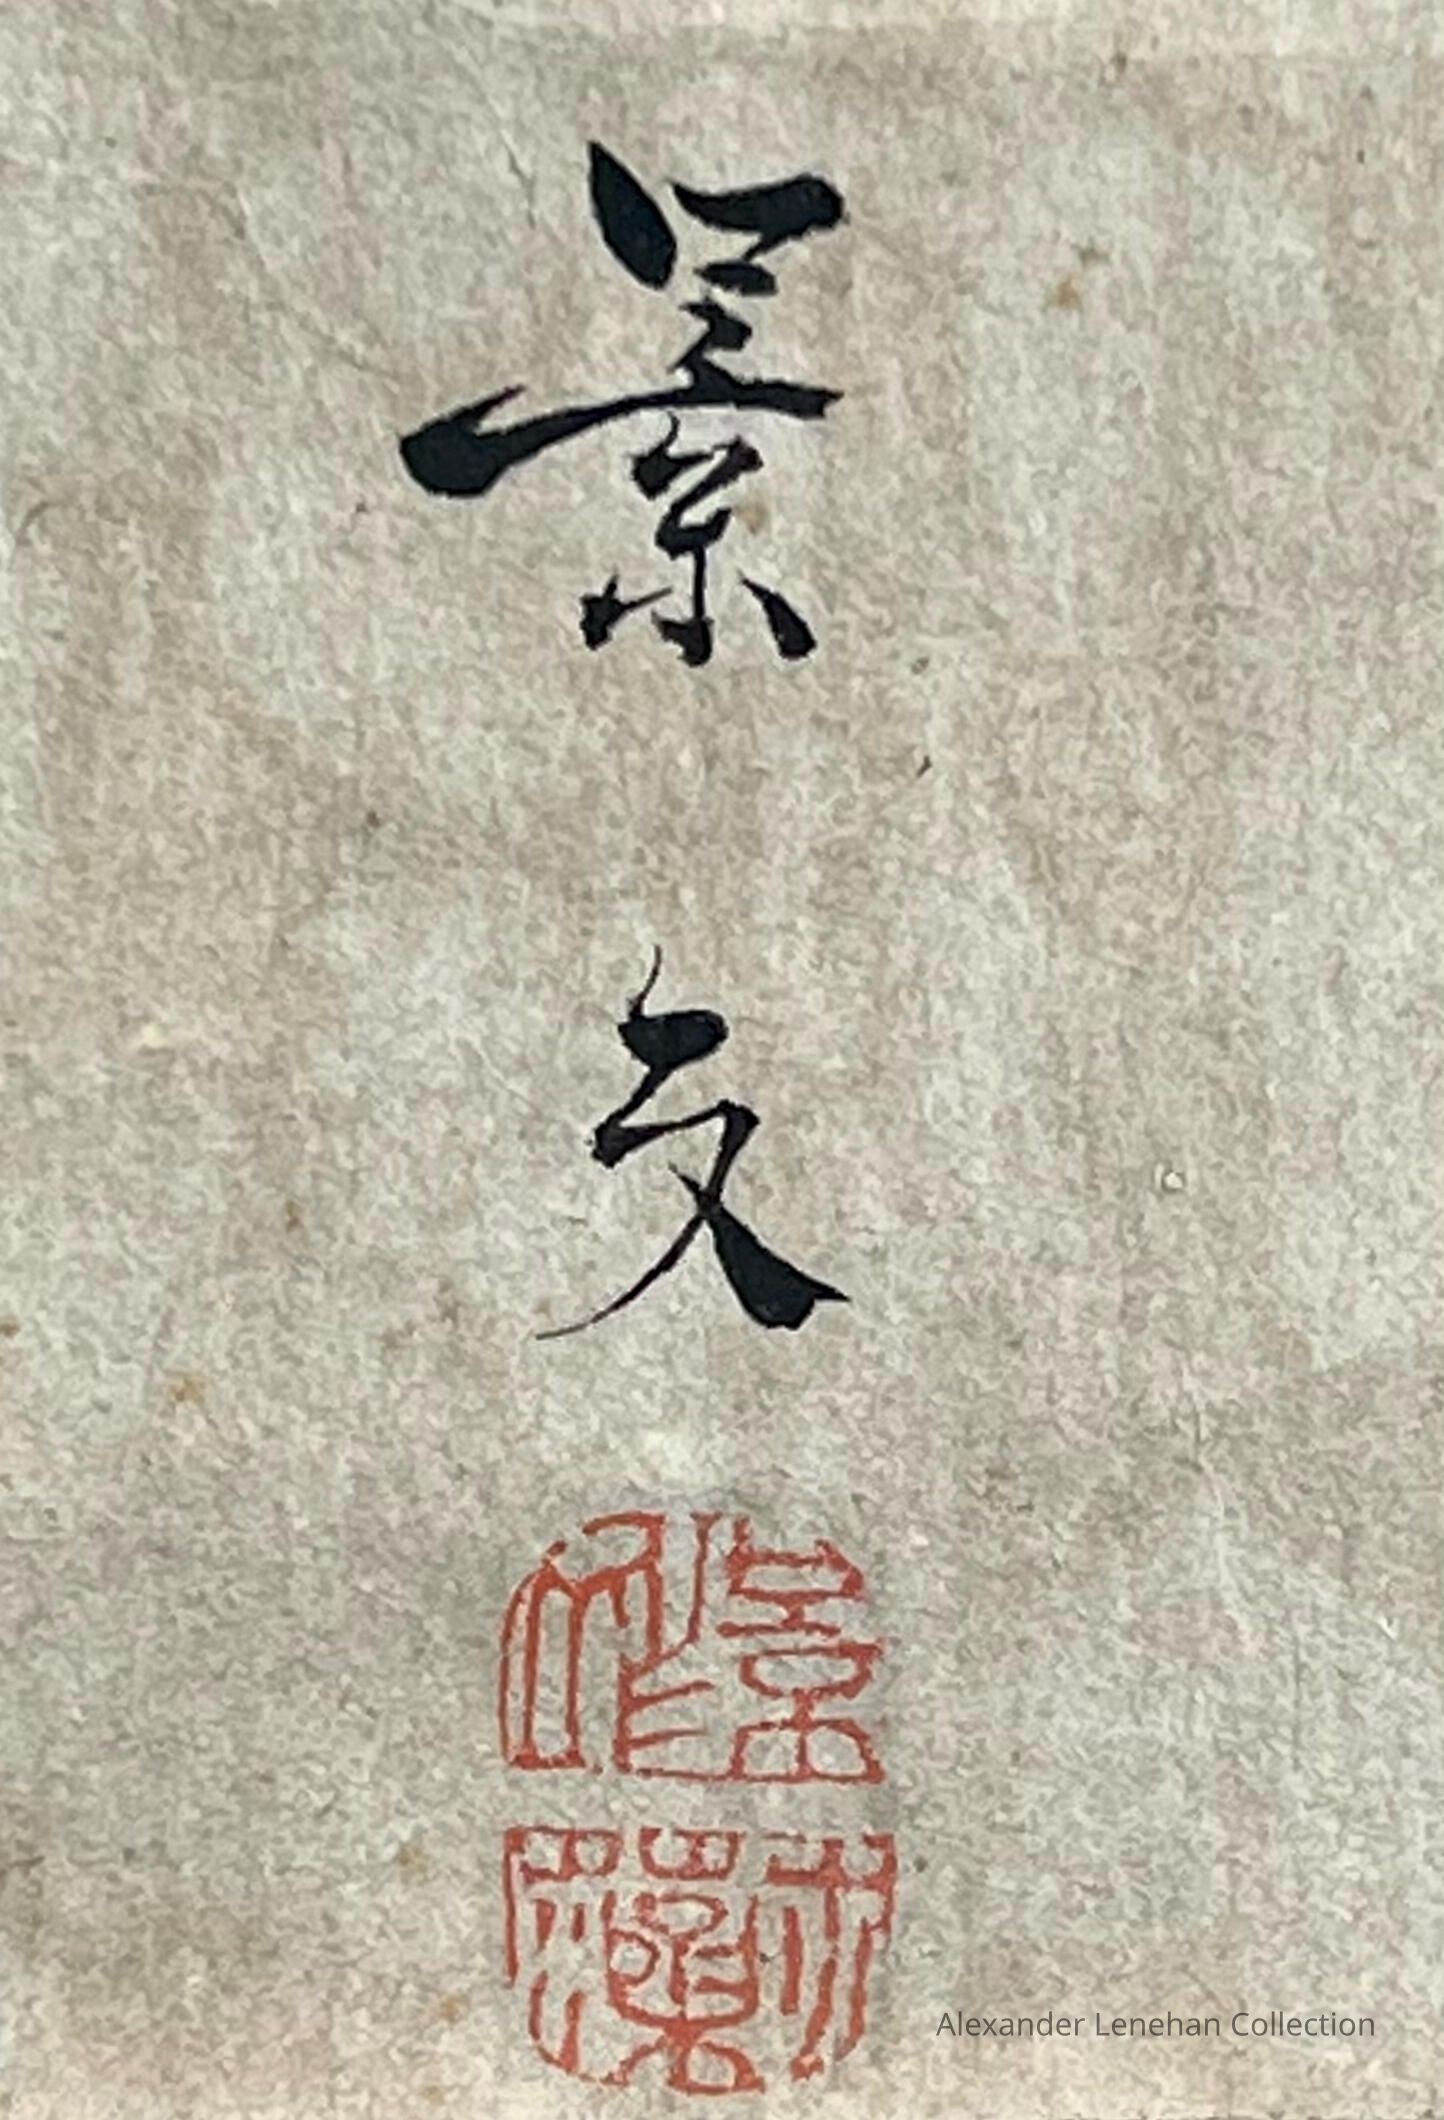 景
文
Alexander Lenehan Collection